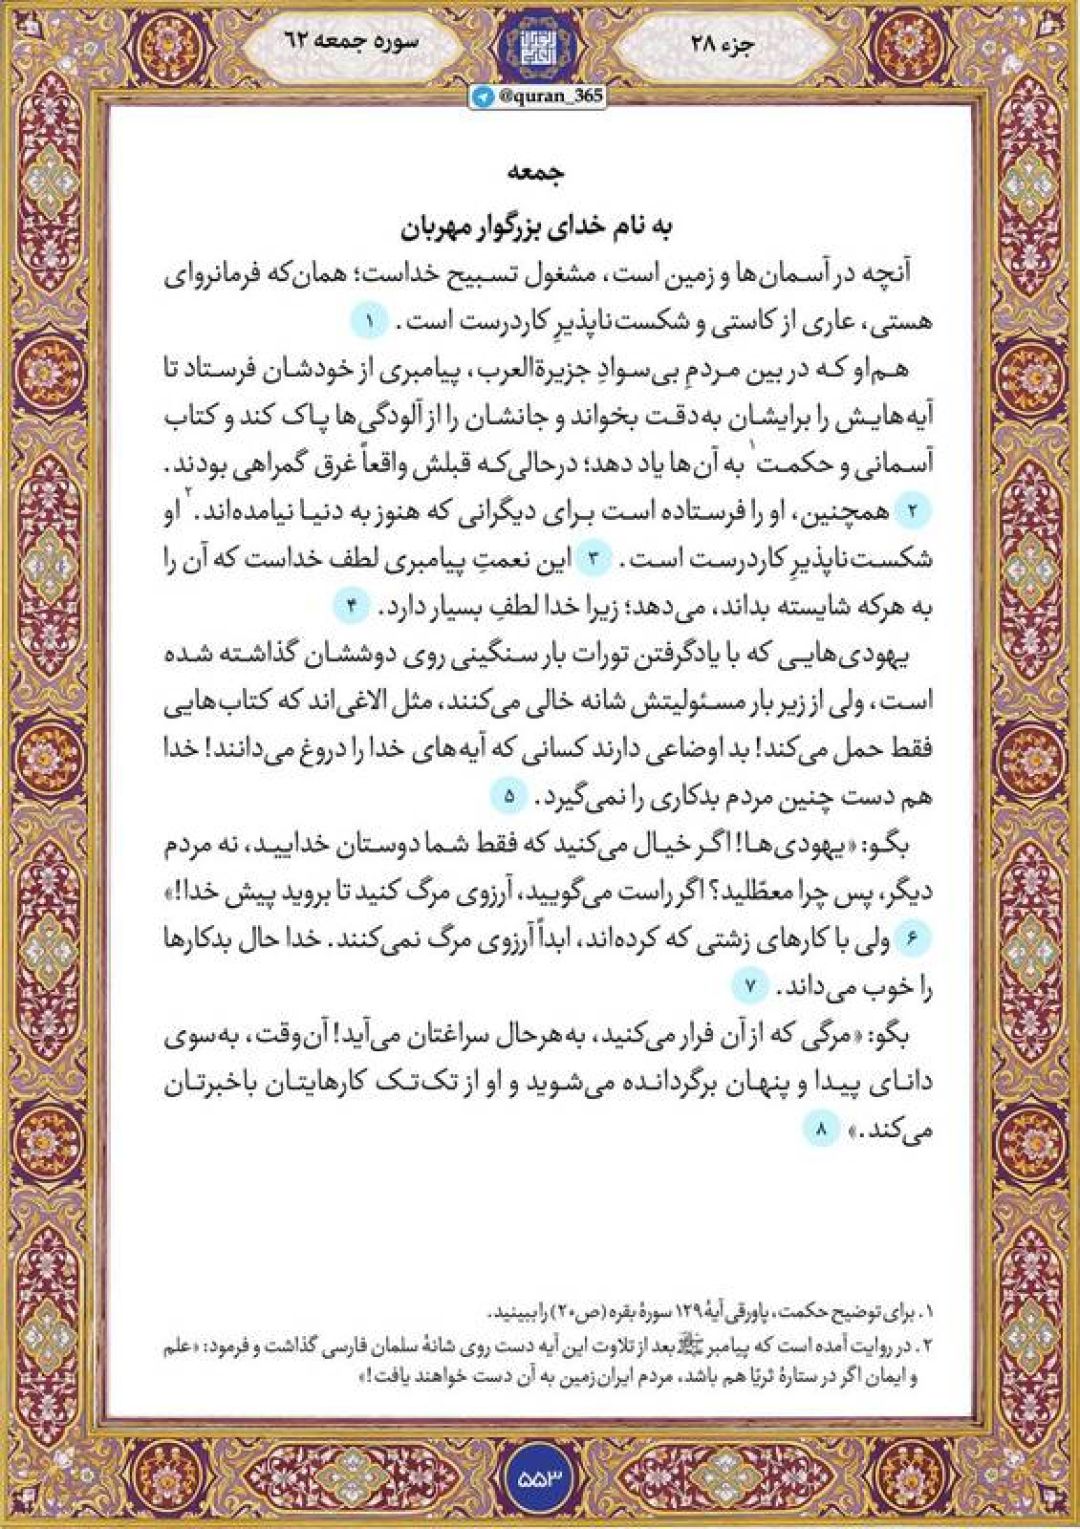 جزء ۲۸
سوره جمعه ۶۲
@quran_365
جمعه
به نام خدای بزرگوار مهربان
آنچه در آسمان‌ها و زمین است، مشغول تسبیح خداست؛ همان‌که فرمانروای
هستی، عاری از کاستی و شکست‌ناپذیرِ کاردرست است. ۱
هم‌او که در بین مردمِ بی‌سوادِ جزیرةالعرب، پیامبری از خودشان فرستاد تا
آیه‌هایش را برایشان به‌دقت بخواند و جانشان را از آلودگی‌ها پاک کند و کتاب
آسمانی و حکمت۱ به آن‌ها یاد دهد؛ درحالی‌که قبلش واقعاً غرق گمراهی بودند.
۲ همچنین، او را فرستاده است برای دیگرانی که هنوز به دنیا نیامده‌اند.۲ او
شکست‌ناپذیرِ کاردرست است. ۳ این نعمتِ پیامبری لطف خداست که آن را
به هرکه شایسته بداند، می‌دهد؛ زیرا خدا لطفِ بسیار دارد. ۴
یهودی‌هایی که با یادگرفتن تورات بار سنگینی روی دوششان گذاشته شده
است، ولی از زیر بار مسئولیتش شانه خالی می‌کنند، مثل الاغی‌اند که کتاب‌هایی
فقط حمل می‌کند! بد اوضاعی دارند کسانی که آیه‌های خدا را دروغ می‌دانند! خدا
هم دست چنین مردم بدکاری را نمی‌گیرد. ۵
بگو: «یهودی‌ها! اگر خیال می‌کنید که فقط شما دوستان خدایید، نه مردم
دیگر، پس چرا معطّلید؟ اگر راست می‌گویید، آرزوی مرگ کنید تا بروید پیش خدا!»
۶ ولی با کارهای زشتی که کرده‌اند، ابداً آرزوی مرگ نمی‌کنند. خدا حال بدکارها
را خوب می‌داند. ۷
بگو: «مرگی که از آن فرار می‌کنید، به‌هرحال سراغتان می‌آید! آن‌وقت، به‌سوی
دانای پیدا و پنهان برگردانده می‌شوید و او از تک‌تک کارهایتان باخبرتان
می‌کند.» ۸
۱. برای توضیح حکمت، پاورقی آیهٔ ۱۲۹ سورهٔ بقره (ص۲۰) را ببینید.
۲. در روایت آمده است که پیامبر ﷺ بعد از تلاوت این آیه دست روی شانهٔ سلمان فارسی گذاشت و فرمود: «علم
و ایمان اگر در ستارهٔ ثریّا هم باشد، مردم ایران‌زمین به آن دست خواهند یافت!»
۵۵۳